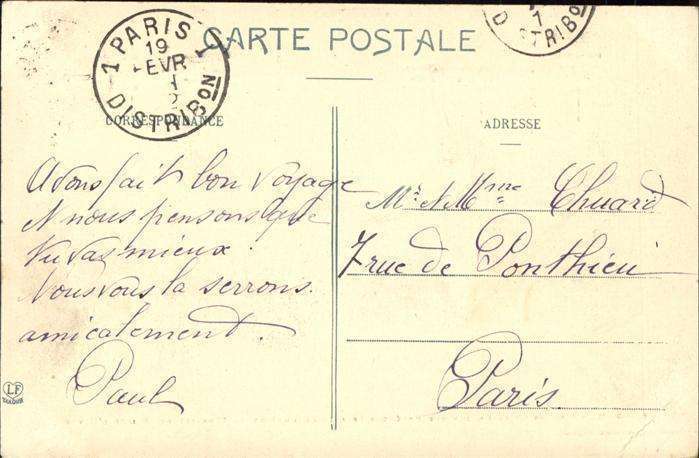 CARTE POSTALE
1 PARIS 1
19
FEVR
DISTRIBON
DISTRIBON
CORRESPONDANCE
ADRESSE
Avons fait bon voyage
et nous pensons que
tu vas mieux.
Nous vous la serrons
amicalement.
Paul
Mr et Mme Chuard
7 rue de Ponthieu
Paris
LF